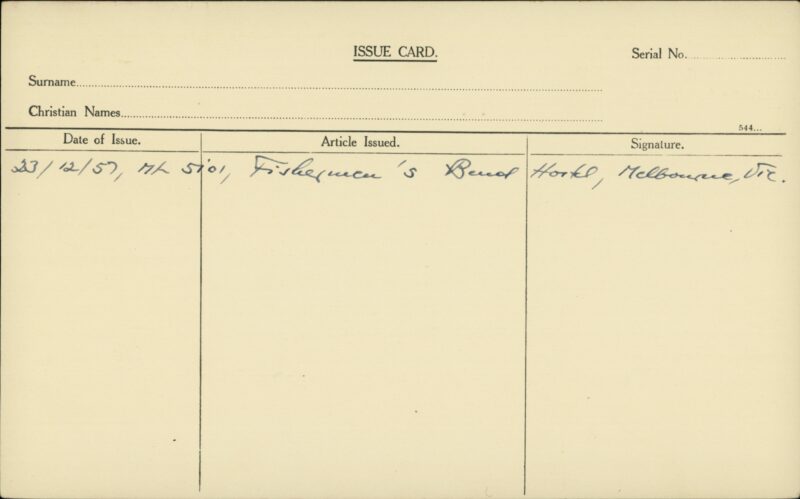 ISSUE CARD.
Serial No.
Surname
Christian Names
544...
Date of Issue. Article Issued. Signature.
23/12/57, ML 5101, Fishermen's Bend Hostel, Melbourne, Vic.